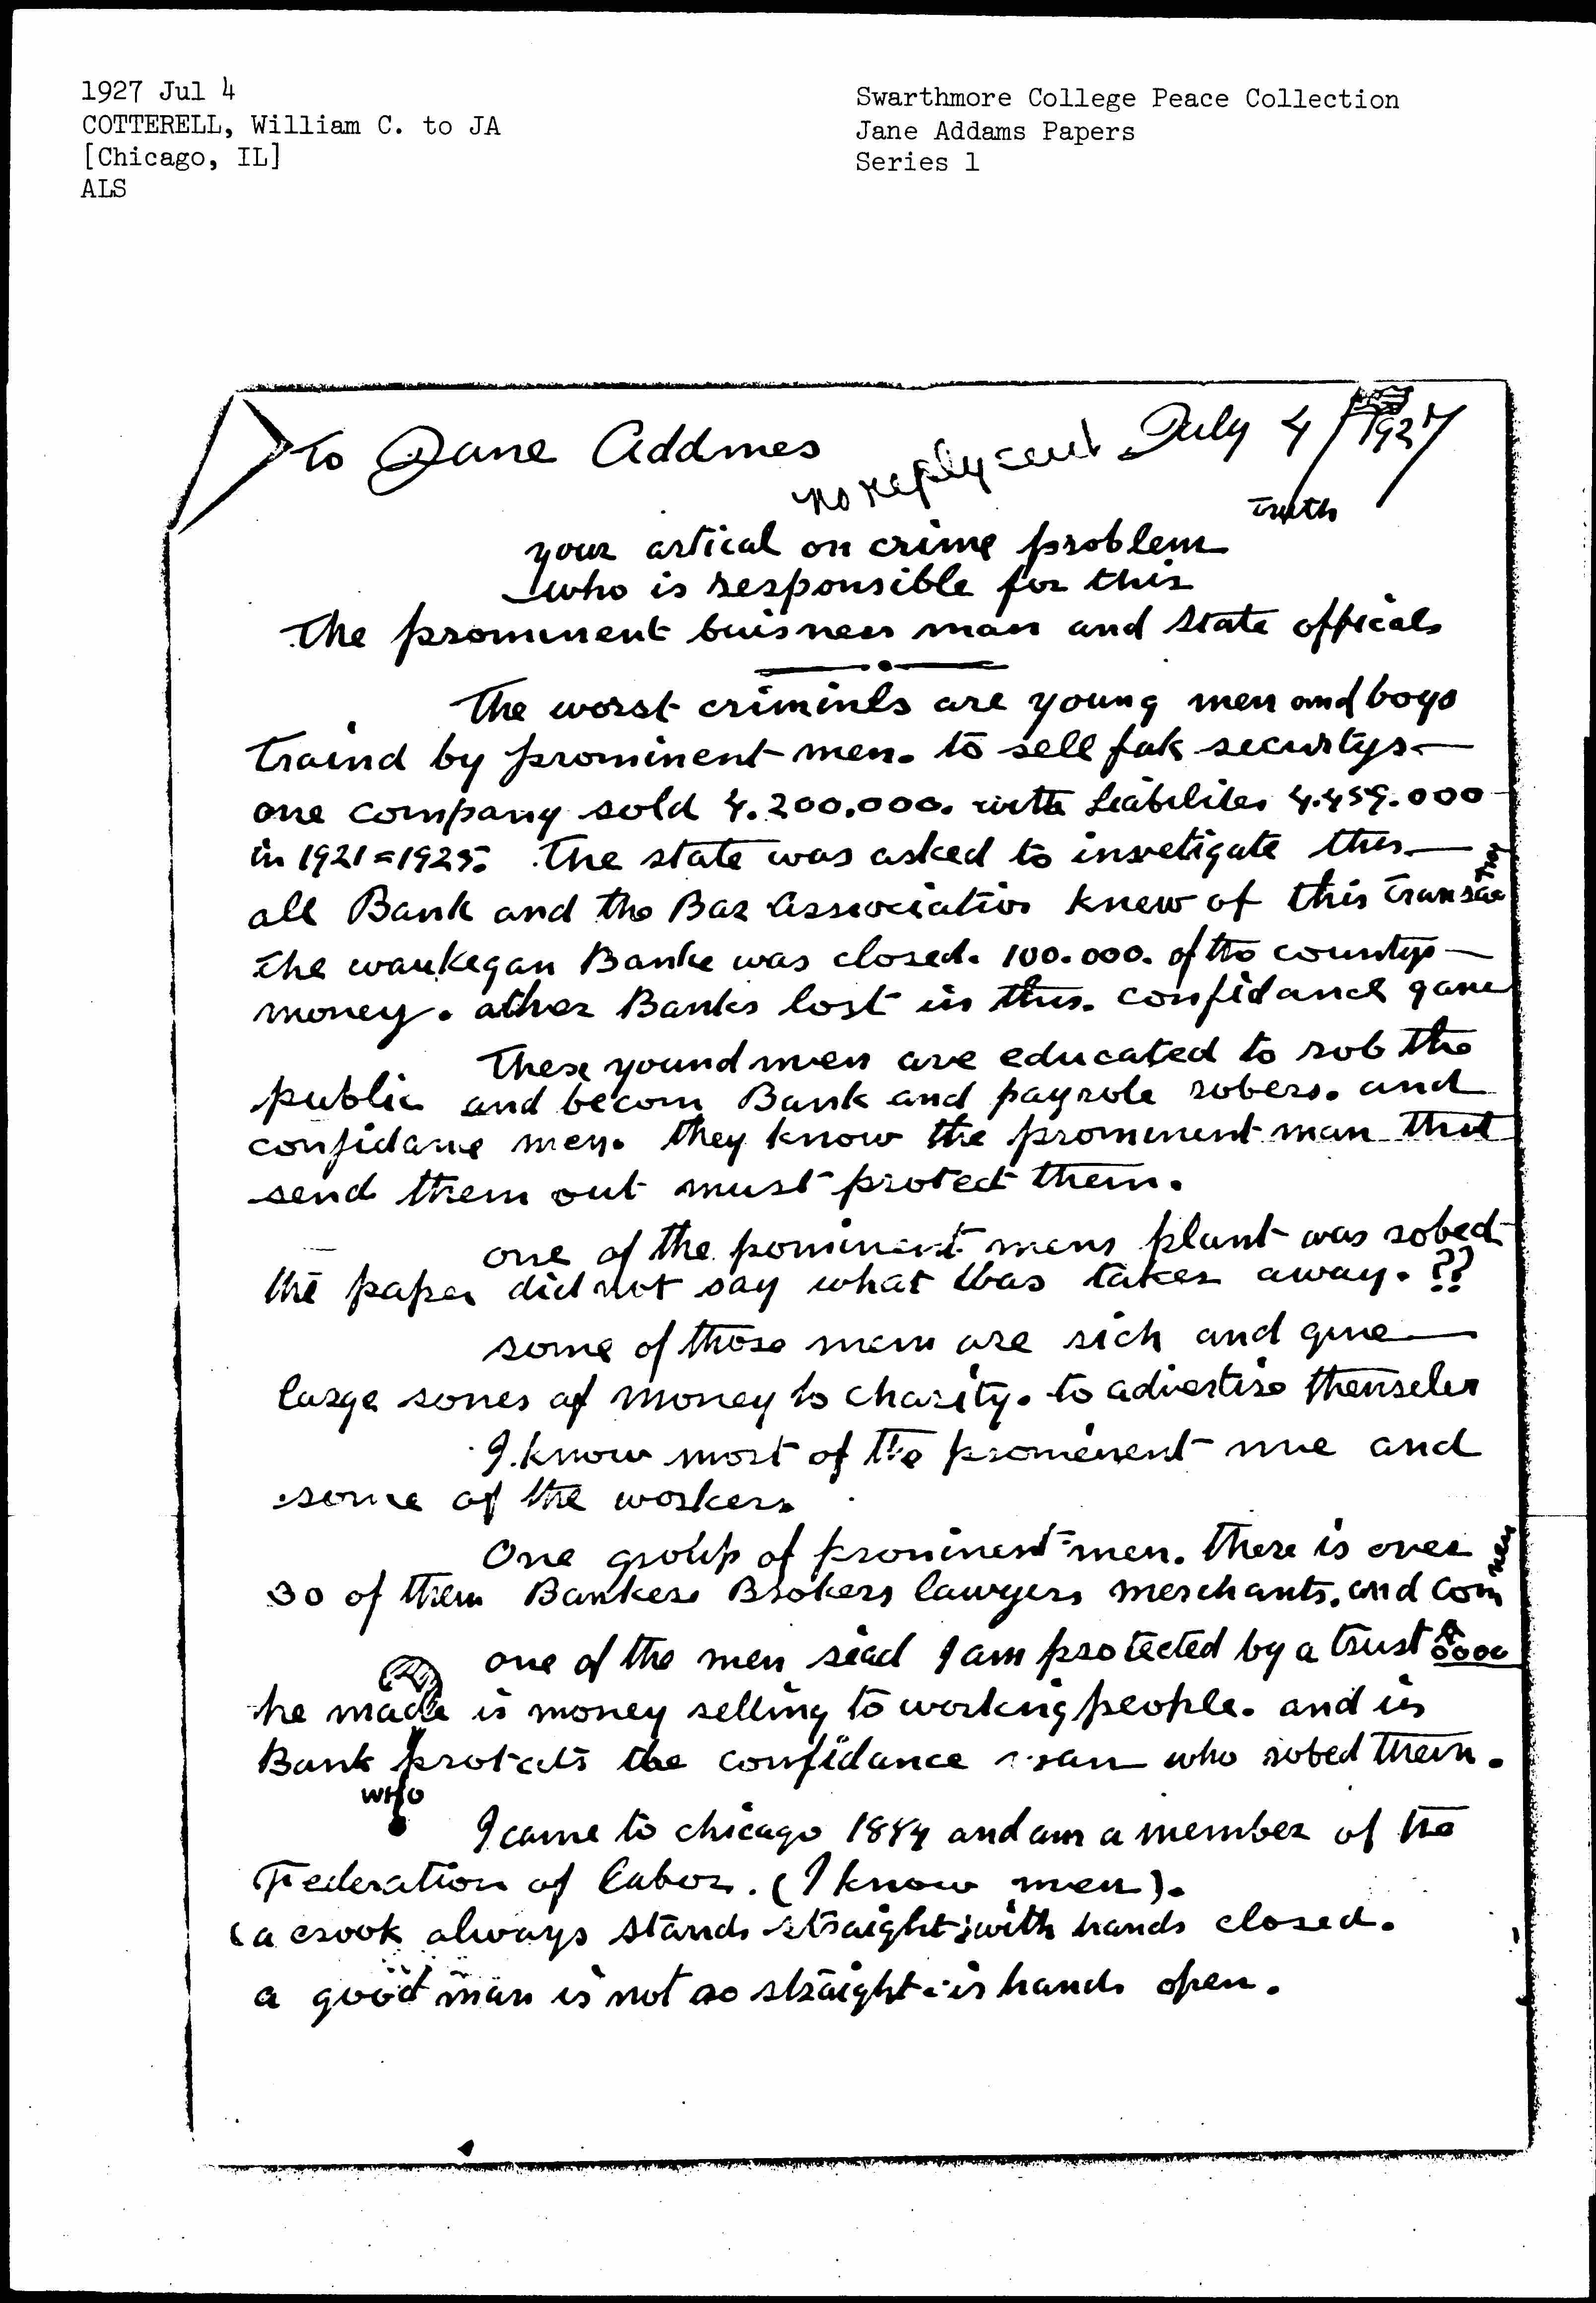 1927 Jul 4
COTTERELL, William C. to JA
[Chicago, IL]
ALS
Swarthmore College Peace Collection
Jane Addams Papers
Series 1
To Jane Addmes
no reply sent
July 4 / 1927
Truth
your artical on crime problem
who is responsible for this
The prominent buisness man and state officals
The worst criminls are young men and boys
traind by prominent men. to sell fak securtys
one company sold 4.200.000. with Liabilites 4.459.000
in 1921=1925. The state was asked to invetigate this
all Bank and the Bar Association knew of this transaction
The waukegan Banke was closed. 100.000. of the countys
money. other Banks lost in this. confidance game
These yound men are educated to rob the
public and becom Bank and payrole robers. and
confidance men. they know the prominent man that
send them out must protect them.
one of the pominent mens plant was robed
the paper did not say what was taken away. ??
some of those men are rich and give
large somes of money to charity. to advertise themseles
I know most of the promenent me and
some of the workers
One group of prominent men. there is over
30 of them Bankers Brokers lawyers merchants. and com men
one of the men siad I am protected by a trust Co
he made is money selling to workingpeople. and is
Bank protects the confidance man who robed them.
WHO
I came to chicago 1884 and am a member of the
Federation of labor. (I know men).
(a crook always stands straight; with hands closed.
a good man is not so straight is hands open.